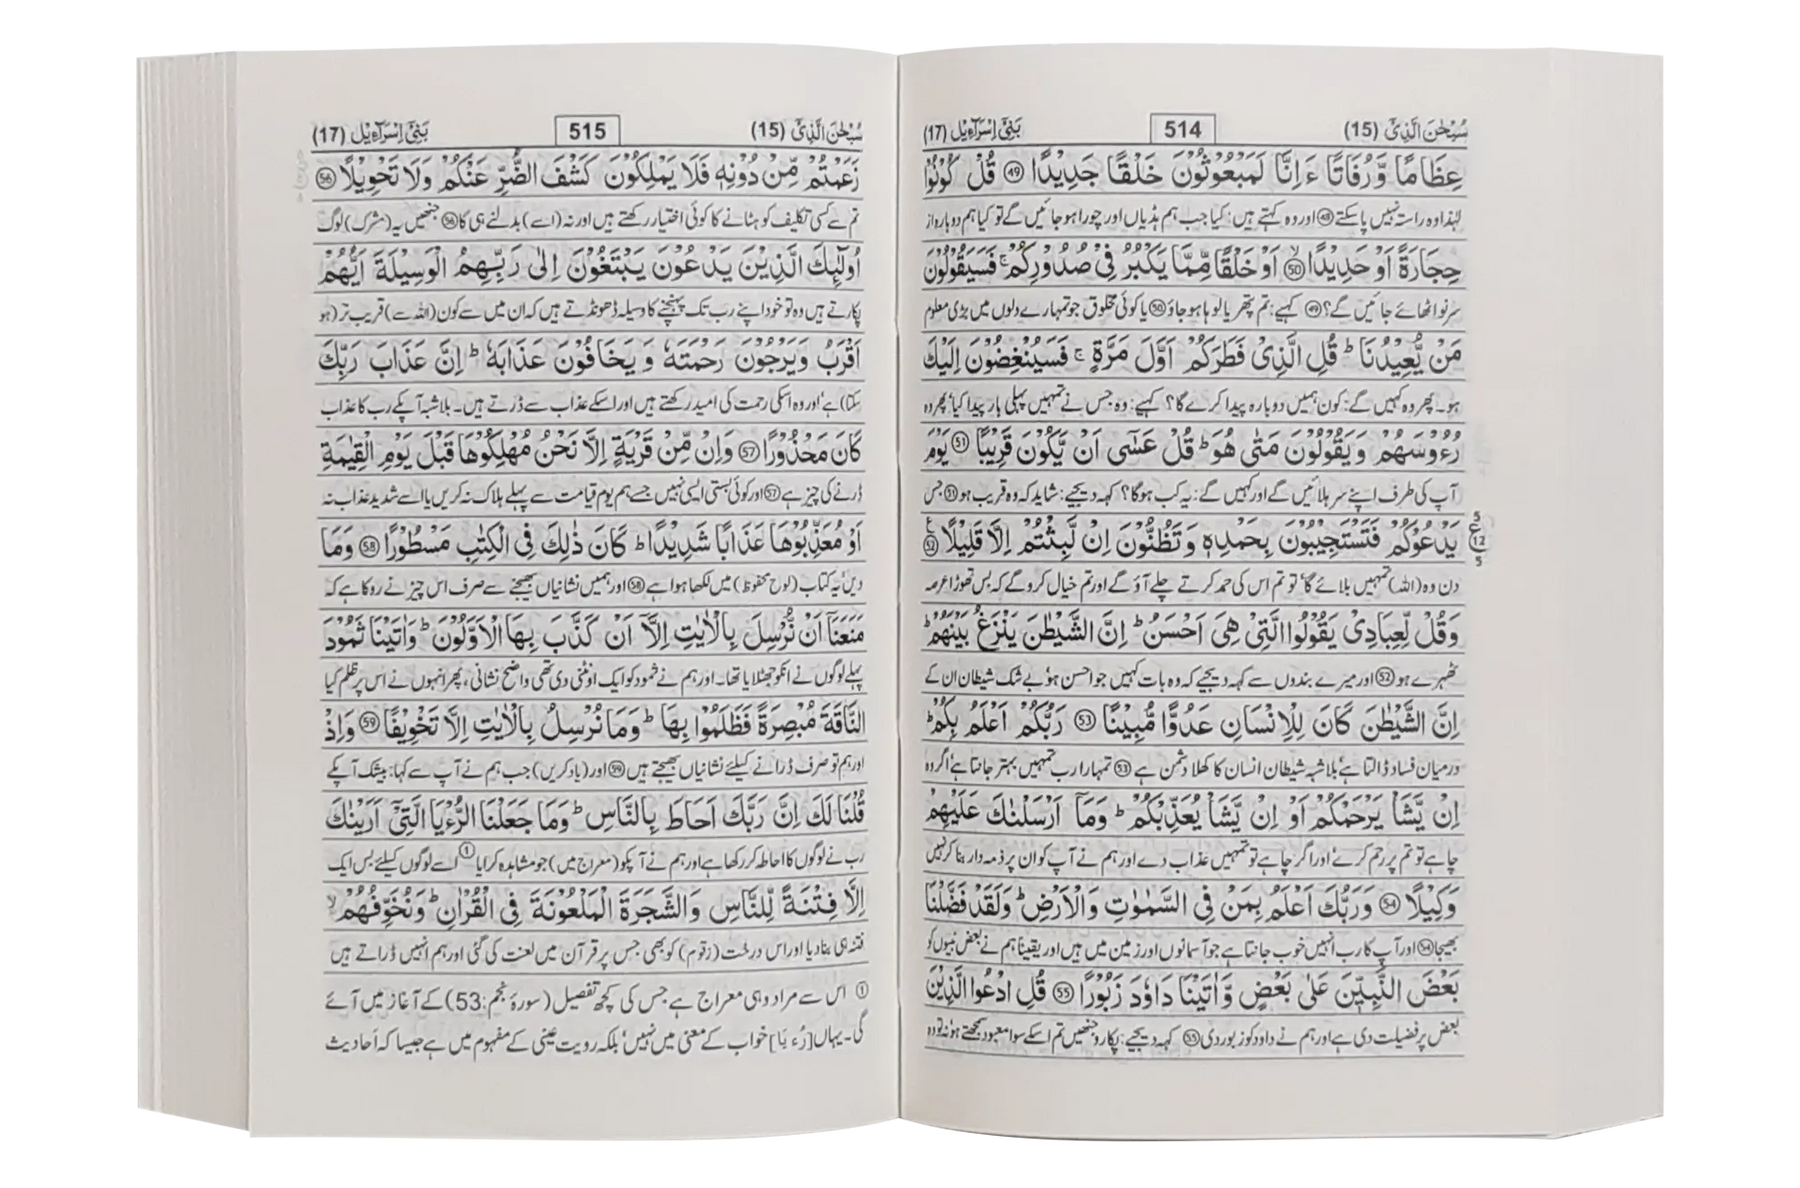 سُبْحٰنَ الَّذِیْٓ (15)
514
بَنِیْٓ اِسْرَآءِیْل (17)
عِظَامًا وَّرُفَاتًا ءَاِنَّا لَمَبْعُوْثُوْنَ خَلْقًا جَدِیْدًا ۝49 قُلْ كُوْنُوْا
لہٰذا وہ راستہ نہیں پا سکتے ۝48 اور وہ کہتے ہیں: کیا جب ہم ہڈیاں اور چورا ہو جائیں گے تو کیا ہم دوبارہ از
حِجَارَةً اَوْ حَدِیْدًا ۝50ۙ اَوْ خَلْقًا مِّمَّا یَكْبُرُ فِیْ صُدُوْرِكُمْ ۚ فَسَیَقُوْلُوْنَ
سر نو اٹھائے جائیں گے؟ ۝49 کہیے: تم پتھر یا لوہا ہو جاؤ ۝50 یا کوئی مخلوق جو تمہارے دلوں میں بڑی معلوم
مَنْ یُّعِیْدُنَا ؕ قُلِ الَّذِیْ فَطَرَكُمْ اَوَّلَ مَرَّةٍ ۚ فَسَیُنْغِضُوْنَ اِلَیْكَ
ہو۔ پھر وہ کہیں گے: کون ہمیں دوبارہ پیدا کرے گا؟ کہیے: وہ جس نے تمہیں پہلی بار پیدا کیا' پھر وہ
رُءُوْسَهُمْ وَ یَقُوْلُوْنَ مَتٰی هُوَ ؕ قُلْ عَسٰۤی اَنْ یَّكُوْنَ قَرِیْبًا ۝51 یَوْمَ
آپ کی طرف اپنے سر ہلائیں گے اور کہیں گے: یہ کب ہوگا؟ کہہ دیجیے: شاید کہ وہ قریب ہو ۝51 جس
یَدْعُوْكُمْ فَتَسْتَجِیْبُوْنَ بِحَمْدِهٖ وَ تَظُنُّوْنَ اِنْ لَّبِثْتُمْ اِلَّا قَلِیْلًا ۝52 ع
5 ع 12 5
دن وہ (اللہ) تمہیں بلائے گا' تو تم اس کی حمد کرتے چلے آؤ گے اور تم خیال کرو گے کہ بس تھوڑا عرصہ
وَ قُلْ لِّعِبَادِیْ یَقُوْلُوا الَّتِیْ هِیَ اَحْسَنُ ؕ اِنَّ الشَّیْطٰنَ یَنْزَغُ بَیْنَهُمْ ؕ
ٹھہرے ہو ۝52 اور میرے بندوں سے کہہ دیجیے کہ وہ بات کہیں جو احسن ہو' بے شک شیطان ان کے
اِنَّ الشَّیْطٰنَ كَانَ لِلْاِنْسَانِ عَدُوًّا مُّبِیْنًا ۝53 رَبُّكُمْ اَعْلَمُ بِكُمْ ؕ
درمیان فساد ڈالتا ہے' بلاشبہ شیطان انسان کا کھلا دشمن ہے ۝53 تمہارا رب تمہیں بہتر جانتا ہے' اگر وہ
اِنْ یَّشَاْ یَرْحَمْكُمْ اَوْ اِنْ یَّشَاْ یُعَذِّبْكُمْ ؕ وَ مَاۤ اَرْسَلْنٰكَ عَلَیْهِمْ
چاہے تو تم پر رحم کرے' اور اگر چاہے تو تمہیں عذاب دے اور ہم نے آپ کو ان پر ذمہ دار بنا کر نہیں
وَكِیْلًا ۝54 وَ رَبُّكَ اَعْلَمُ بِمَنْ فِی السَّمٰوٰتِ وَ الْاَرْضِ ؕ وَ لَقَدْ فَضَّلْنَا
بھیجا ۝54 اور آپ کا رب انہیں خوب جانتا ہے جو آسمانوں اور زمین میں ہیں اور یقیناً ہم نے بعض نبیوں کو
بَعْضَ النَّبِیّٖنَ عَلٰی بَعْضٍ وَّ اٰتَیْنَا دَاوٗدَ زَبُوْرًا ۝55 قُلِ ادْعُوا الَّذِیْنَ
بعض پر فضیلت دی ہے اور ہم نے داود کو زبور دی ۝55 کہہ دیجیے: پکارو جنھیں تم اسکے سوا معبود سمجھتے ہو' نہ تو وہ
سُبْحٰنَ الَّذِیْٓ (15)
515
بَنِیْٓ اِسْرَآءِیْل (17)
زَعَمْتُمْ مِّنْ دُوْنِهٖ فَلَا یَمْلِكُوْنَ كَشْفَ الضُّرِّ عَنْكُمْ وَ لَا تَحْوِیْلًا ۝56
تم سے کسی تکلیف کو ہٹانے کا کوئی اختیار رکھتے ہیں اور نہ (اسے) بدلنے ہی کا ۝56 جنھیں یہ (مشرک) لوگ
اُولٰٓىِٕكَ الَّذِیْنَ یَدْعُوْنَ یَبْتَغُوْنَ اِلٰی رَبِّهِمُ الْوَسِیْلَةَ اَیُّهُمْ
پکارتے ہیں وہ تو خود اپنے رب تک پہنچنے کا وسیلہ ڈھونڈتے ہیں کہ ان میں سے کون (اللہ سے) قریب تر (ہو
اَقْرَبُ وَ یَرْجُوْنَ رَحْمَتَهٗ وَ یَخَافُوْنَ عَذَابَهٗ ؕ اِنَّ عَذَابَ رَبِّكَ
سکتا) ہے' اور وہ اسکی رحمت کی امید رکھتے ہیں اور اسکے عذاب سے ڈرتے ہیں۔ بلاشبہ آپکے رب کا عذاب
كَانَ مَحْذُوْرًا ۝57 وَ اِنْ مِّنْ قَرْیَةٍ اِلَّا نَحْنُ مُهْلِكُوْهَا قَبْلَ یَوْمِ الْقِیٰمَةِ
ڈرنے کی چیز ہے ۝57 اور کوئی بستی ایسی نہیں جسے ہم یوم قیامت سے پہلے ہلاک نہ کریں یا اسے شدید عذاب نہ
اَوْ مُعَذِّبُوْهَا عَذَابًا شَدِیْدًا ؕ كَانَ ذٰلِكَ فِی الْكِتٰبِ مَسْطُوْرًا ۝58 وَ مَا
دیں' یہ کتاب (لوح محفوظ) میں لکھا ہوا ہے ۝58 اور ہمیں نشانیاں بھیجنے سے صرف اس چیز نے روکا ہے کہ
مَنَعَنَاۤ اَنْ نُّرْسِلَ بِالْاٰیٰتِ اِلَّاۤ اَنْ كَذَّبَ بِهَا الْاَوَّلُوْنَ ؕ وَ اٰتَیْنَا ثَمُوْدَ
پہلے لوگوں نے انکو جھٹلایا تھا۔ اور ہم نے ثمود کو ایک اونٹنی دی تھی واضح نشانی، پھر انہوں نے اس پر ظلم کیا
النَّاقَةَ مُبْصِرَةً فَظَلَمُوْا بِهَا ؕ وَ مَا نُرْسِلُ بِالْاٰیٰتِ اِلَّا تَخْوِیْفًا ۝59 وَ اِذْ
اور ہم تو صرف ڈرانے کیلئے نشانیاں بھیجتے ہیں ۝59 اور (یاد کریں) جب ہم نے آپ سے کہا: بیشک آپکے
قُلْنَا لَكَ اِنَّ رَبَّكَ اَحَاطَ بِالنَّاسِ ؕ وَ مَا جَعَلْنَا الرُّءْیَا الَّتِیْۤ اَرَیْنٰكَ
رب نے لوگوں کا احاطہ کر رکھا ہے اور ہم نے آپکو (معراج میں) جو مشاہدہ کرایا ① اسے لوگوں کیلئے بس ایک
اِلَّا فِتْنَةً لِّلنَّاسِ وَ الشَّجَرَةَ الْمَلْعُوْنَةَ فِی الْقُرْاٰنِ ؕ وَ نُخَوِّفُهُمْ ۙ
فتنہ ہی بنا دیا اور اس درخت (زقوم) کو بھی جس پر قرآن میں لعنت کی گئی اور ہم انہیں ڈراتے ہیں
① اس سے مراد وہی معراج ہے جس کی کچھ تفصیل (سورۂ نجم:53) کے آغاز میں آئے
گی۔ یہاں [رُءیَا] خواب کے معنی میں نہیں' بلکہ رویت عینی کے مفہوم میں ہے جیسا کہ احادیث